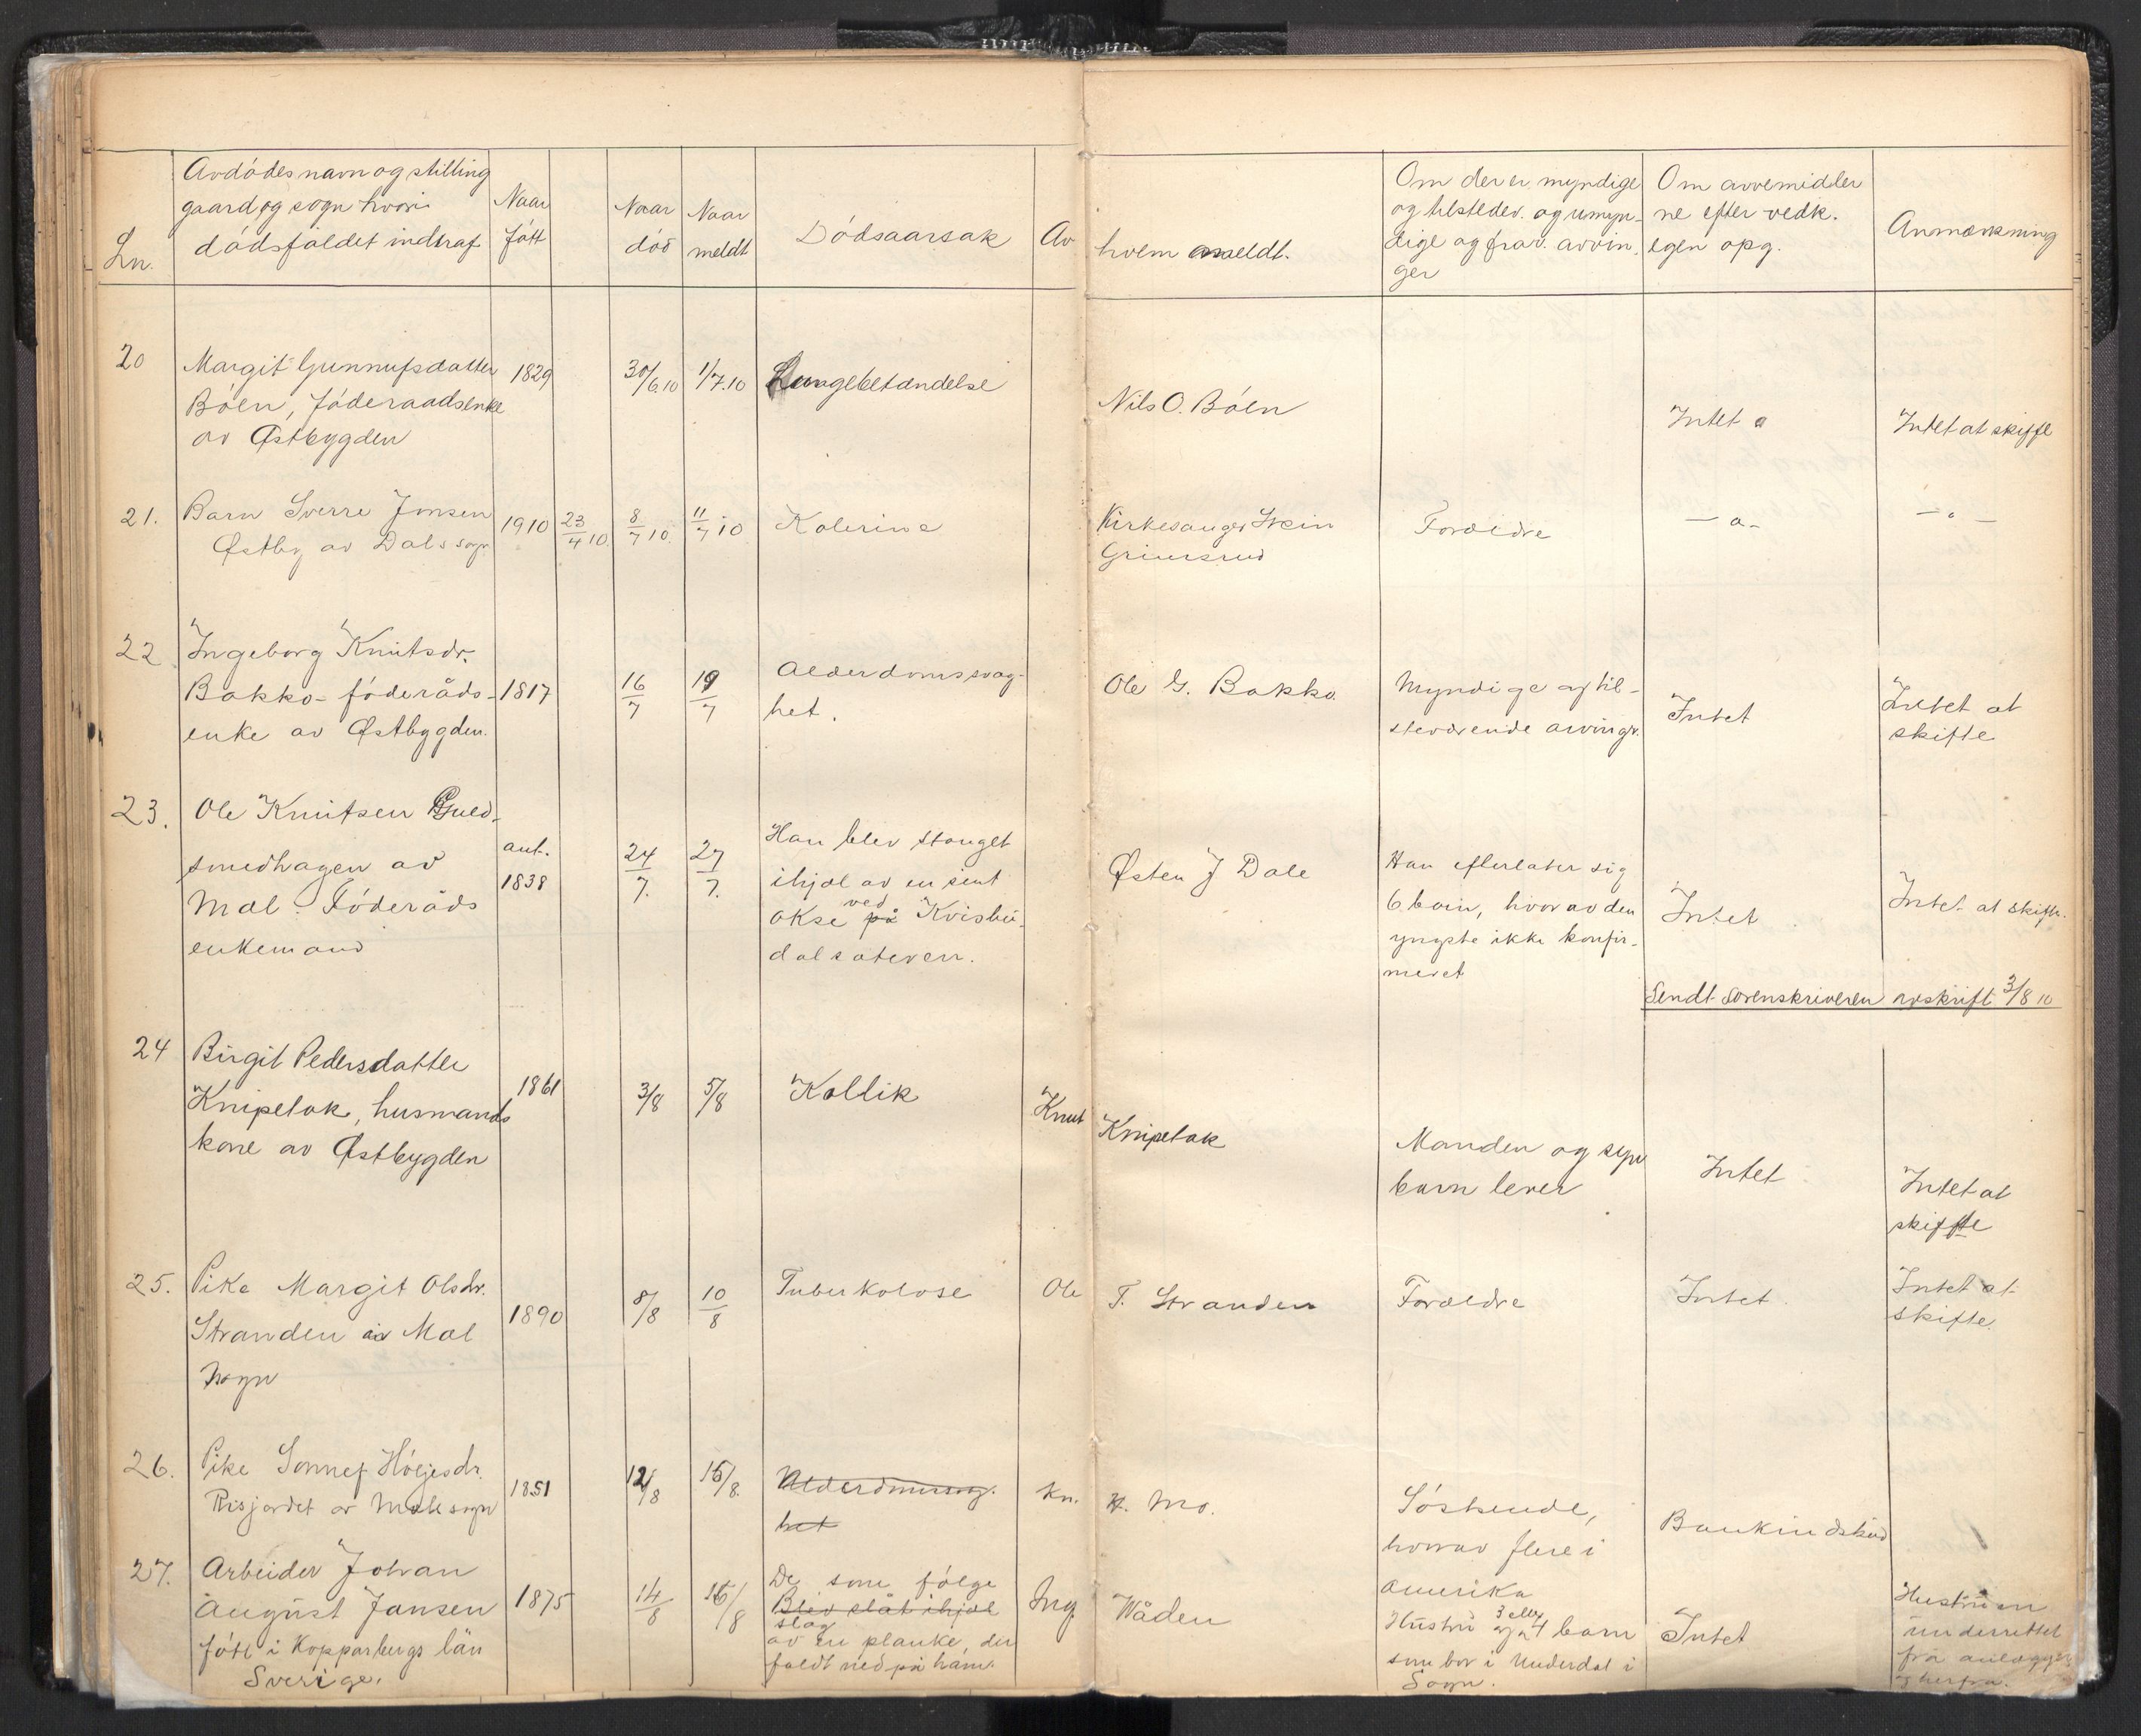 Avdödes navn og stilling
gaard og sogn hvori
dödsfaldet indtraf
Ln.
Naar
fött
Naar
död
Naar
meldt
Dödsaarsak
Av
hvem anmeldt.
Om der er myndige
og tilstedev. og umyn-
dige og frav. arvin-
ger
Om arvemidler
ne efter vedk.
egen opg.
Anmærkning
20
Margit Gunnufsdatter
Böen, föderaadsenke
av Østbygden
1829
30/6 10
1/7.10
Lungebetændelse
Nils O. Böen
Intet
Intet at skifte
21.
Barn Sverre Jonsen
Østby av Dals sogn
1910
23/4 10.
8/7 10.
11/7 10
Kolerine
Kirkesanger Svein
Grimsrud
Forældre
— " —
— " —
22
Ingeborg Knutsdr.
Bakko - föderåds-
enke av Østbygden.
1817
16/7
19/7
Alderdomssvag-
het.
Ole G. Bakko
Myndige og til-
steværende arvingr.
Intet
Intet at
skifte
23.
Ole Knutsen Guld-
smedhagen av
Mæl. Föderåds
enkemand
ant.
1838
24/7.
27/7.
Han blev stanget
ihjæl av en sint
ved
okse på Kvisbu-
dalsæteren.
Østen J Dale
Han efterlater sig
6 barn, hvorav den
yngste ikke konfir-
meret
Intet
Intet at skifte.
Sendt sorenskriveren avskrift 3/8 10
24
Birgit Pedersdatter
Knipetak, husmands
kone av Østbygden
1861
3/8
5/8
Kollik
Knut Knipetak
Manden og syv
barn lever
Intet
Intet at
skifte
25.
Pike Margit Olsdr.
Stranden av Mæl
sogn
1890
8/8
10/8
Tuberkolose
Ole T. Stranden
Forældre
Intet
Intet at
skifte.
26.
Pike Sonnef Höljesdr.
Risjordet av Mæls sogn
1851
12/8
15/8.
Alderdomssvag-
het
Kn. K. Mo.
Söskende,
hvorav flere i
Amerika
Bankindskud
27.
Arbeider Johan
August Jansen
fött i Kopparbergs län
Sverige.
1875
14/8
15/8
De som fölge
Blev slåt ihjæl
slag
av en planke, der
faldt ned på ham.
Ing. Wåden
3 eller
Hustru og 4 barn
som bor i Underdal i
Sogn.
Intet
Hustruen
underrettet
fra anlægget
og herfra.